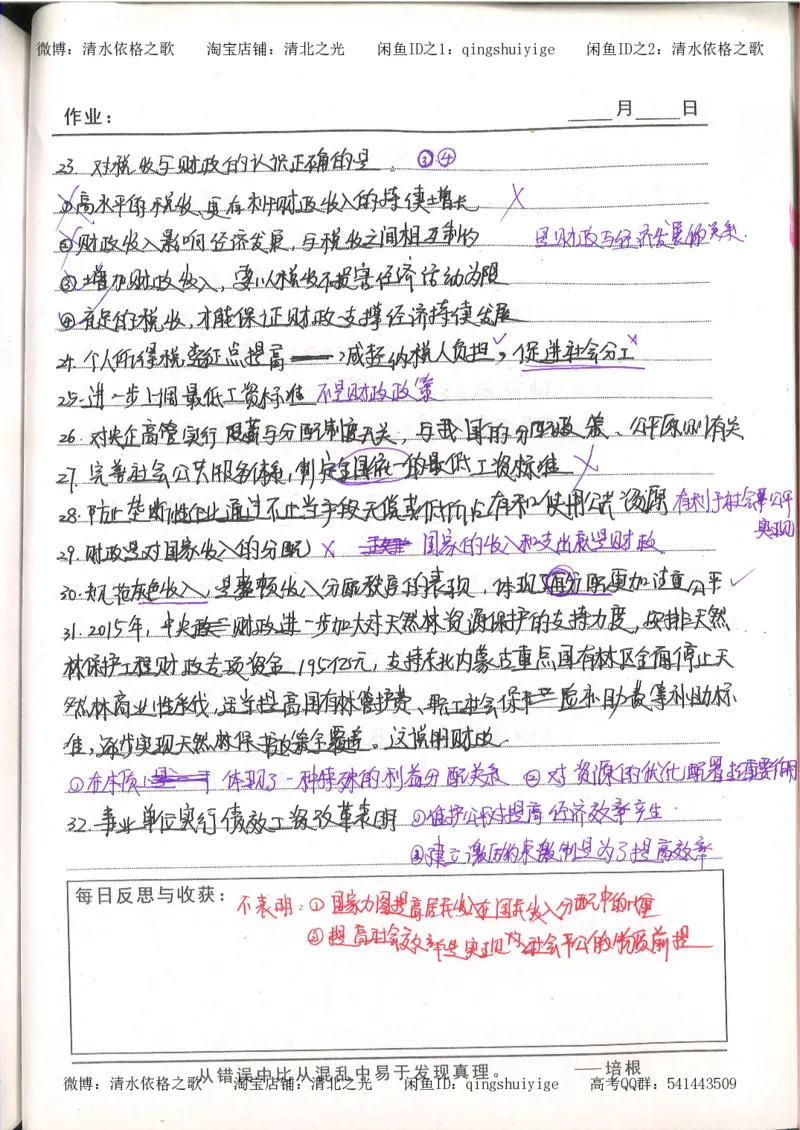 微博：清水依格之歌 淘宝店铺：清北之光 闲鱼ID之1：qingshuiyige 闲鱼ID之2：清水依格之歌
作业： 月 日
23. 对税收与财政的认识正确的是 ③④
①高水平的税收,更有利于财政收入的持续增长 ×
②财政收入影响经济发展,与税收之间相互制约 是财政与经济发展的关系.
③增加财政收入,要以税收不损害经济活动为限
④充足的税收,才能保证财政支撑经济持续发展
24. 个人所得税起征点提高——减轻纳税人负担✓,促进社会分工×
25. 进一步上调最低工资标准 不是财政政策
26. 对央企高管实行限薪与分配制度无关,与我国的分配政策、公平原则有关
27. 完善社会公共服务体系,制定全国统一的最低工资标准 ×
28. 防止垄断性企业通过不正当手段无偿或低价占有和使用公共资源 有利于社会公平
实现
29. 财政是对国家收入的分配 × 国家的收入和支出就是财政
30. 规范灰色收入,是整顿收入分配秩序的表现,体现了再分配更加注重公平 ✓
31. 2015年,中央财政进一步加大对天然林资源保护的支持力度,安排天然
林保护工程财政专项资金195亿元,支持东北内蒙古重点国有林区全面停止天
然林商业性采伐,适当提高国有林管护费、职工社会保险补助费等补助标
准,逐步实现天然林保护政策全覆盖。这说明财政
①在本质上体现了一种特殊的利益分配关系 ②对资源的优化配置起重要作用
32. 事业单位实行绩效工资改革表明 ①维护公平对提高经济效率产生
②建立激励约束机制是为了提高效率
每日反思与收获：
不表明：①国家力图提高居民收入在国民收入分配中的比重
②提高社会效率是实现社会平公的物质前提
从错误中比从混乱中易于发现真理。 ——培根
微博：清水依格之歌 淘宝店铺：清北之光 闲鱼ID：qingshuiyige 高考QQ群：541443509